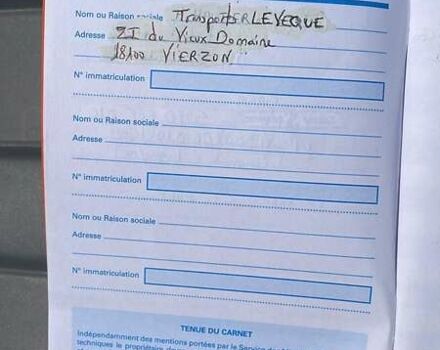 Nom ou Raison sociale Transports LEVEQUE
Adresse ZI du Vieux Domaine
18100 VIERZON
N° immatriculation
Nom ou Raison sociale
Adresse
N° immatriculation
Nom ou Raison sociale
Adresse
N° immatriculation
TENUE DU CARNET
Indépendamment des mentions portées par le Service
techniques le propriétaire